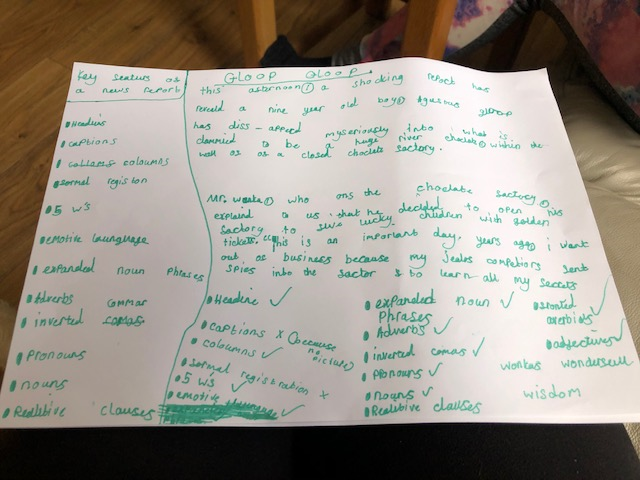 Key seaturs os
a news report
Headlins
captions
collares coloumns
sormal registon
5 w's
emotive launguage
expanded noun phrases
Adverbs commar
inverted comas
Pronouns
nouns
Realitive clauses
GLOOP GLOOP
this afternoon ① a shocking report has
reveald a nine year old boy ① Agustus gloop
has diss-appeared myseriously into what is
clammed to be a huge river choclate within the
wall os as a closed choclets sactory.
Mr. wonka ① who ons the choclate sactory ① has
explaind to us that he decided to open his
sactory to sive lucky children with golden
tickets, "This is an important day. years ago ① i want
out os business because my Jealos competiors sent
spies into the sactor & to learn all my secrets
Headline ✓
captions x (because no picture)
coloumns ✓
sormal registration x
5 w's ✓
emotive ✓
expanded noun ✓
Phrases
Adverbs ✓
inverted comas ✓
Pronouns ✓
nouns ✓
Realitive clauses
sronted ✓
averbials
adjectives ✓
wonkas wondersull
wisdom